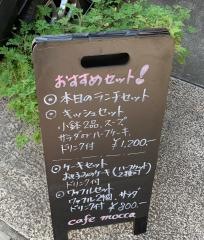 おすすめセット!
◎本日のランチセット
◎キッシュセット
小鉢2品、スープ
サラダorハーフケーキ、
ドリンク付 ¥1,200-
◎ケーキセット
ドリンク付
◎ワッフルセット
ワッフル2個、サラダ
ドリンク付 ¥800-
cafe mocca